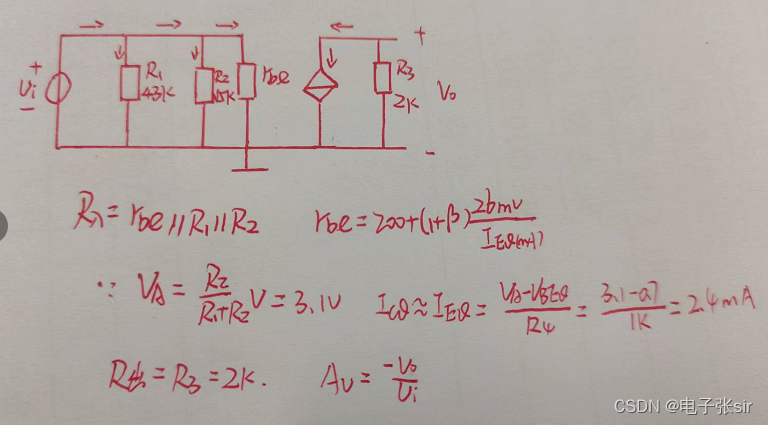 Ui R₁ 43K R₂ 15K rbe R₃ 2K V₀
+ − + −
Ri = rbe // R₁ // R₂ rbe = 200 + (1+β) 26mV / IEQ(mA)
∵ VA = R₂ / (R₁+R₂) V = 3.1V ICQ ≈ IEQ = (VA − VBEQ) / R4 = (3.1 − 0.7) / 1K = 2.4mA
R出 = R₃ = 2K. AU = −V₀ / Ui
CSDN @电子张sir